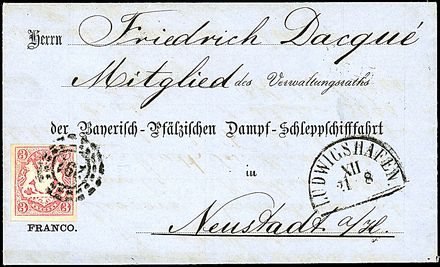 Herrn Friedrich Dacqué
Mitglied des Verwaltungsraths
der Bayerisch-Pfälzischen Dampf-Schleppschifffahrt
in
LUDWIGSHAFEN
XII
21 8
Neustadt a/H.
3 3
3 3
FRANCO.